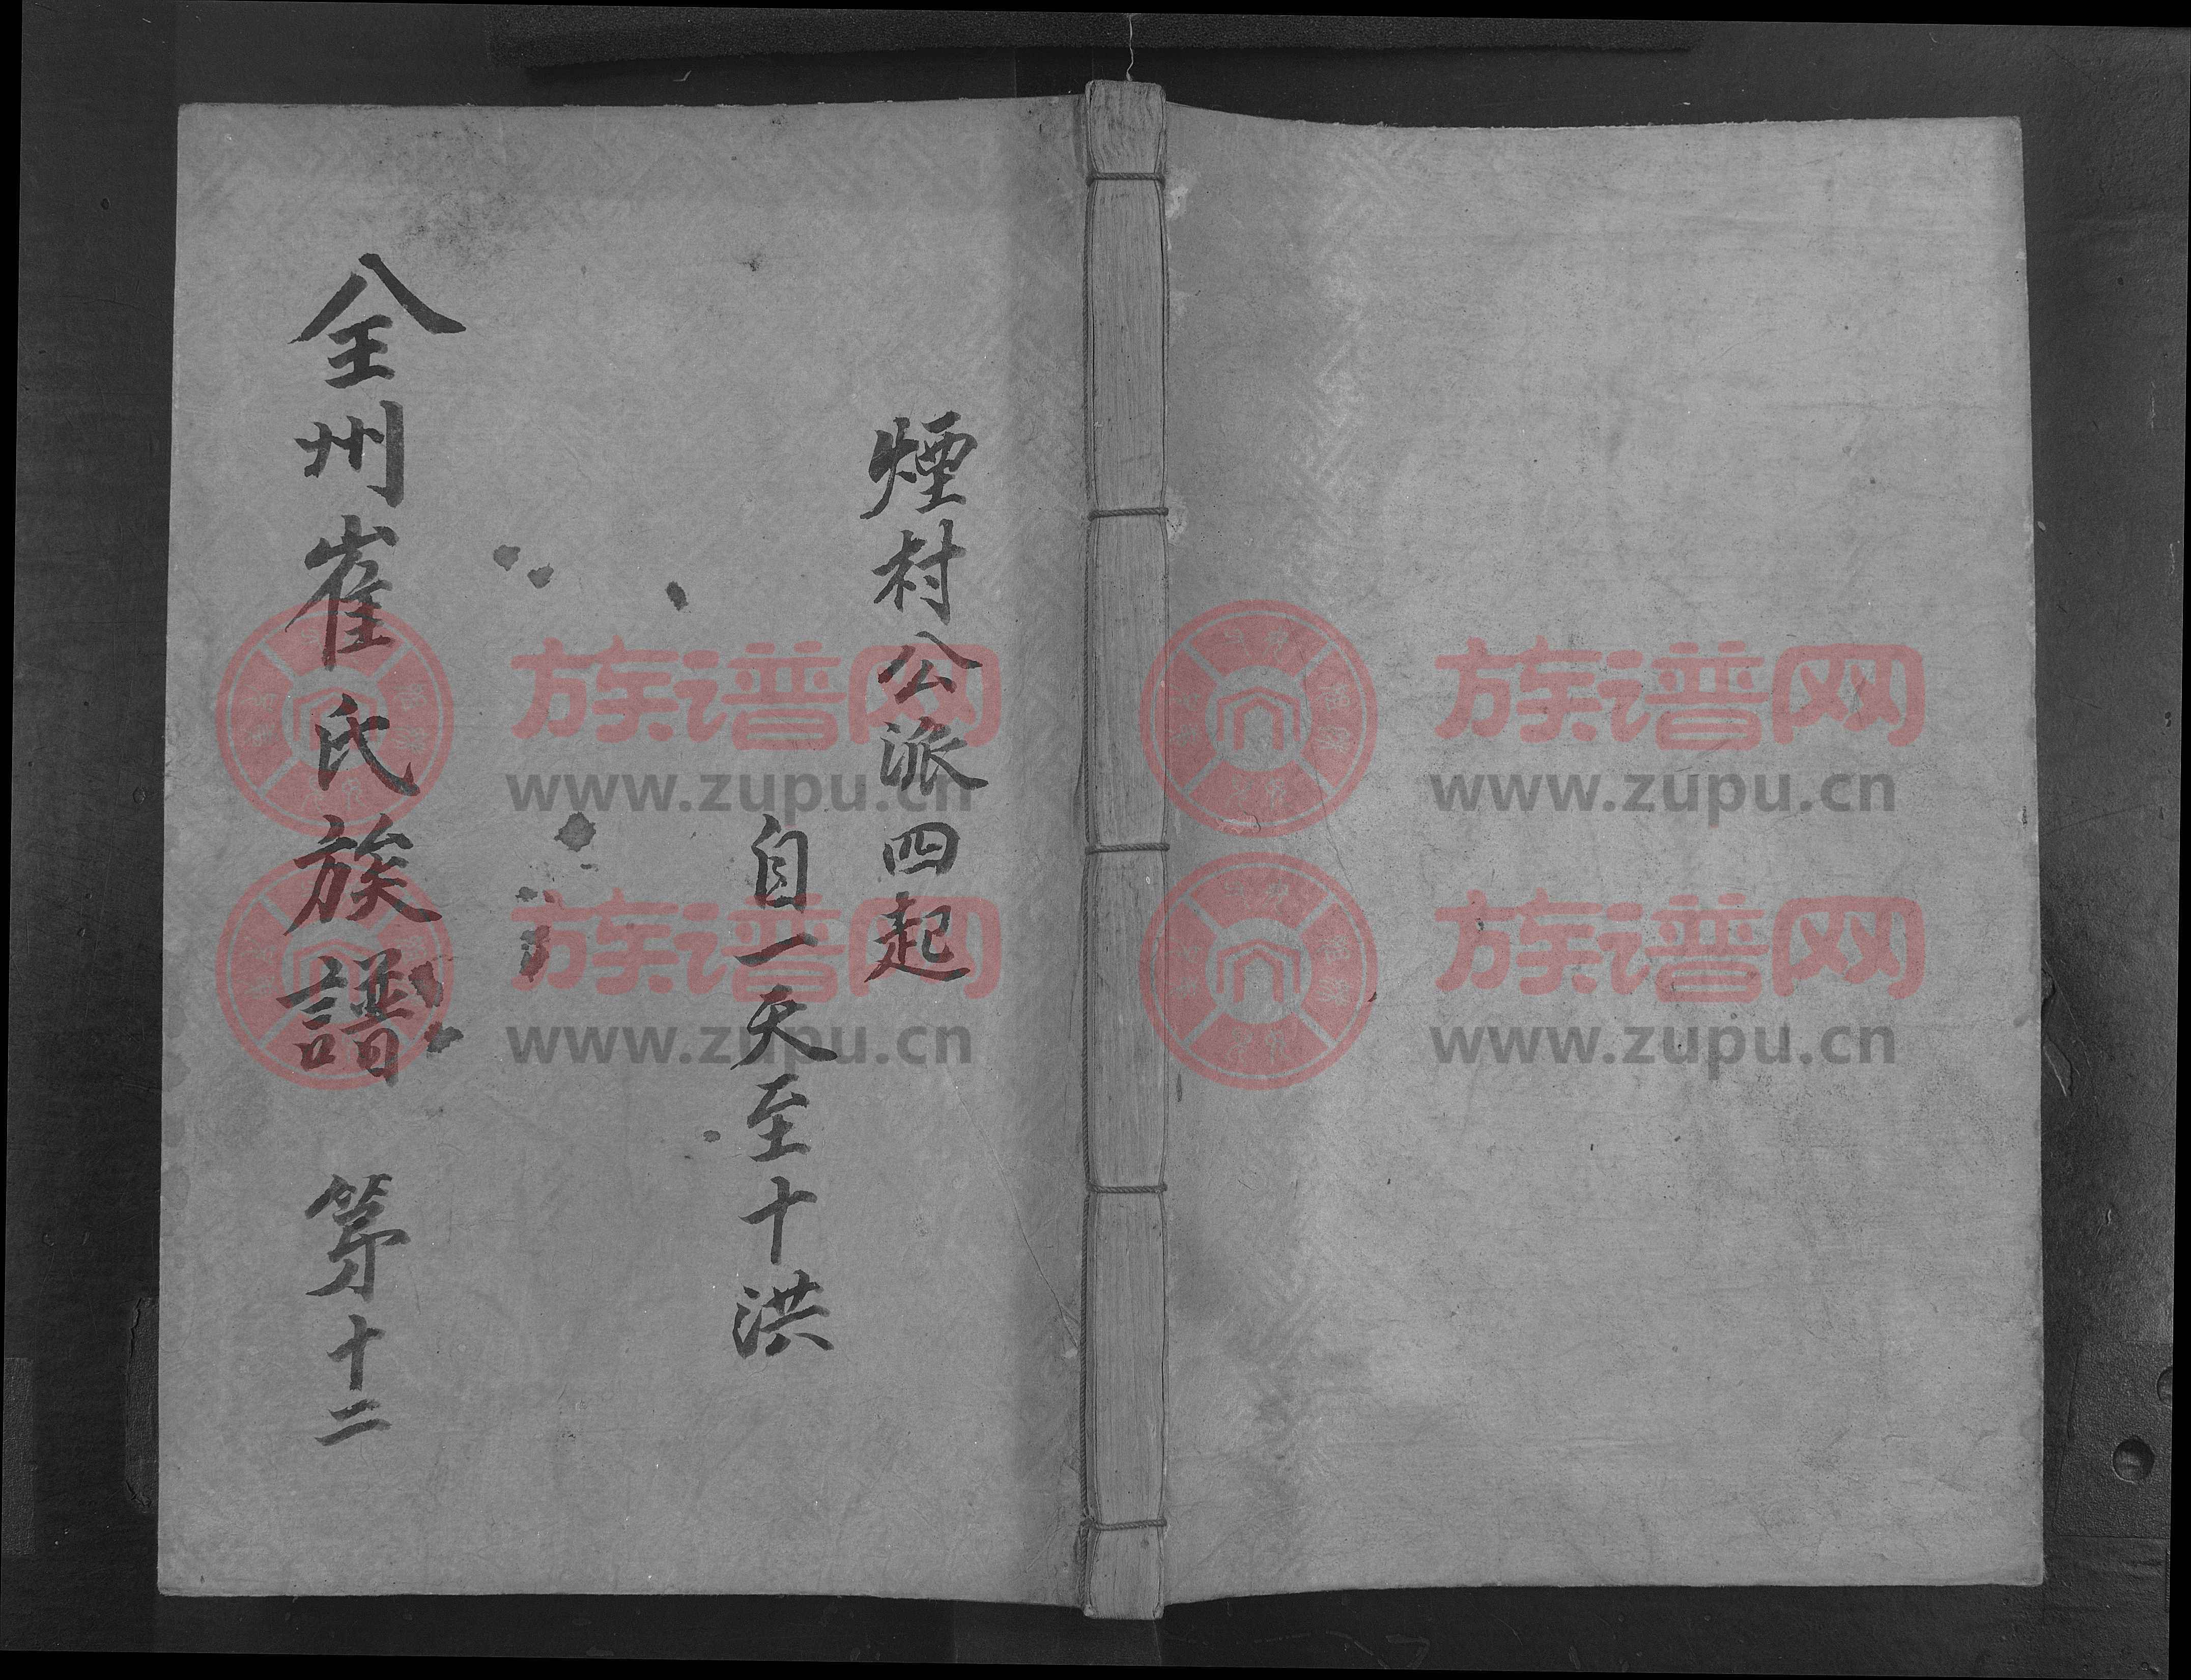 煙村公派四起
自一天至十洪
全州崔氏族譜 第十二
族谱网
www.zupu.cn
族谱网
www.zupu.cn
族谱网
www.zupu.cn
族谱网
www.zupu.cn